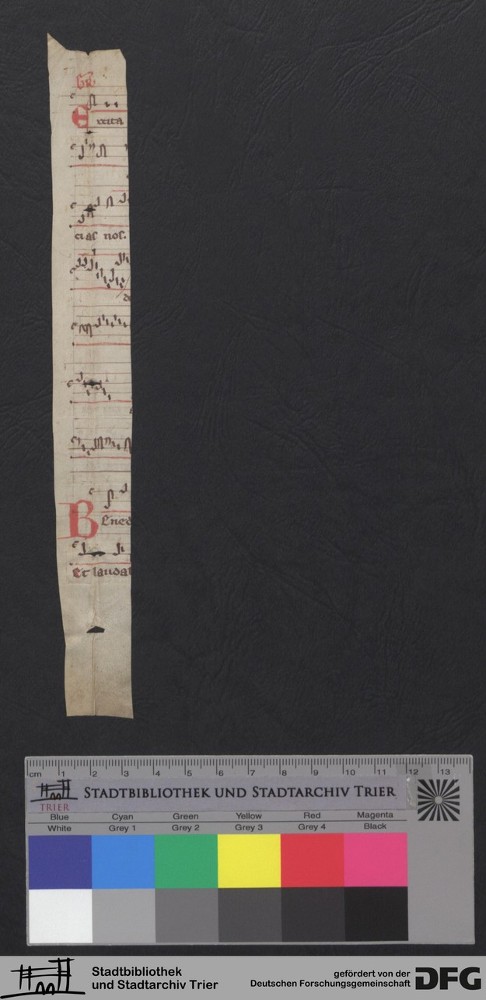 Gr
Exita
cias nos.
Bened
et laudab
cm 1 2 3 4 5 6 7 8 9 10 11 12 13
TRIER
STADTBIBLIOTHEK UND STADTARCHIV TRIER
Blue Cyan Green Yellow Red Magenta
White Grey 1 Grey 2 Grey 3 Grey 4 Black
Stadtbibliothek
und Stadtarchiv Trier
gefördert von der
Deutschen Forschungsgemeinschaft
DFG